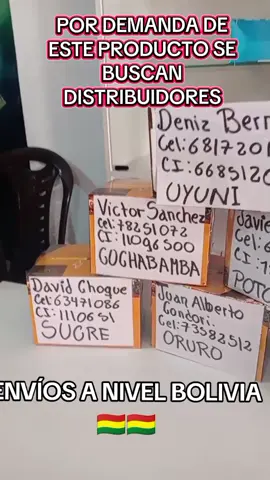 POR DEMANDA DE
ESTE PRODUCTO SE
BUSCAN
DISTRIBUIDORES
Deniz Bern
Cel: 6817201
CI: 6685120
UYUNI
Victor Sanchez
Cel: 78251072
CI: 11096500
COCHABAMBA
Javie
POTO
David Choque
Cel: 63471086
CI: 1110651
SUCRE
Juan Alberto
Condori.
Cel: 73582512
ORURO
ENVÍOS A NIVEL BOLIVIA
🇧🇴🇧🇴